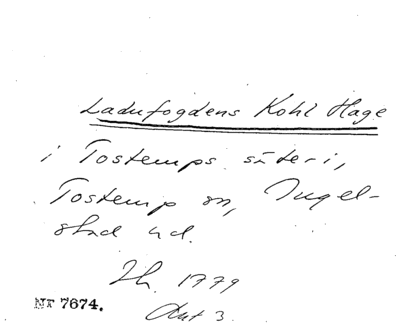 Ladufogdens Kohl Hage
i Tostemps säteri,
Tostemp sn, Ingel-
stad hd.
Th. 1779
Nr 7674.